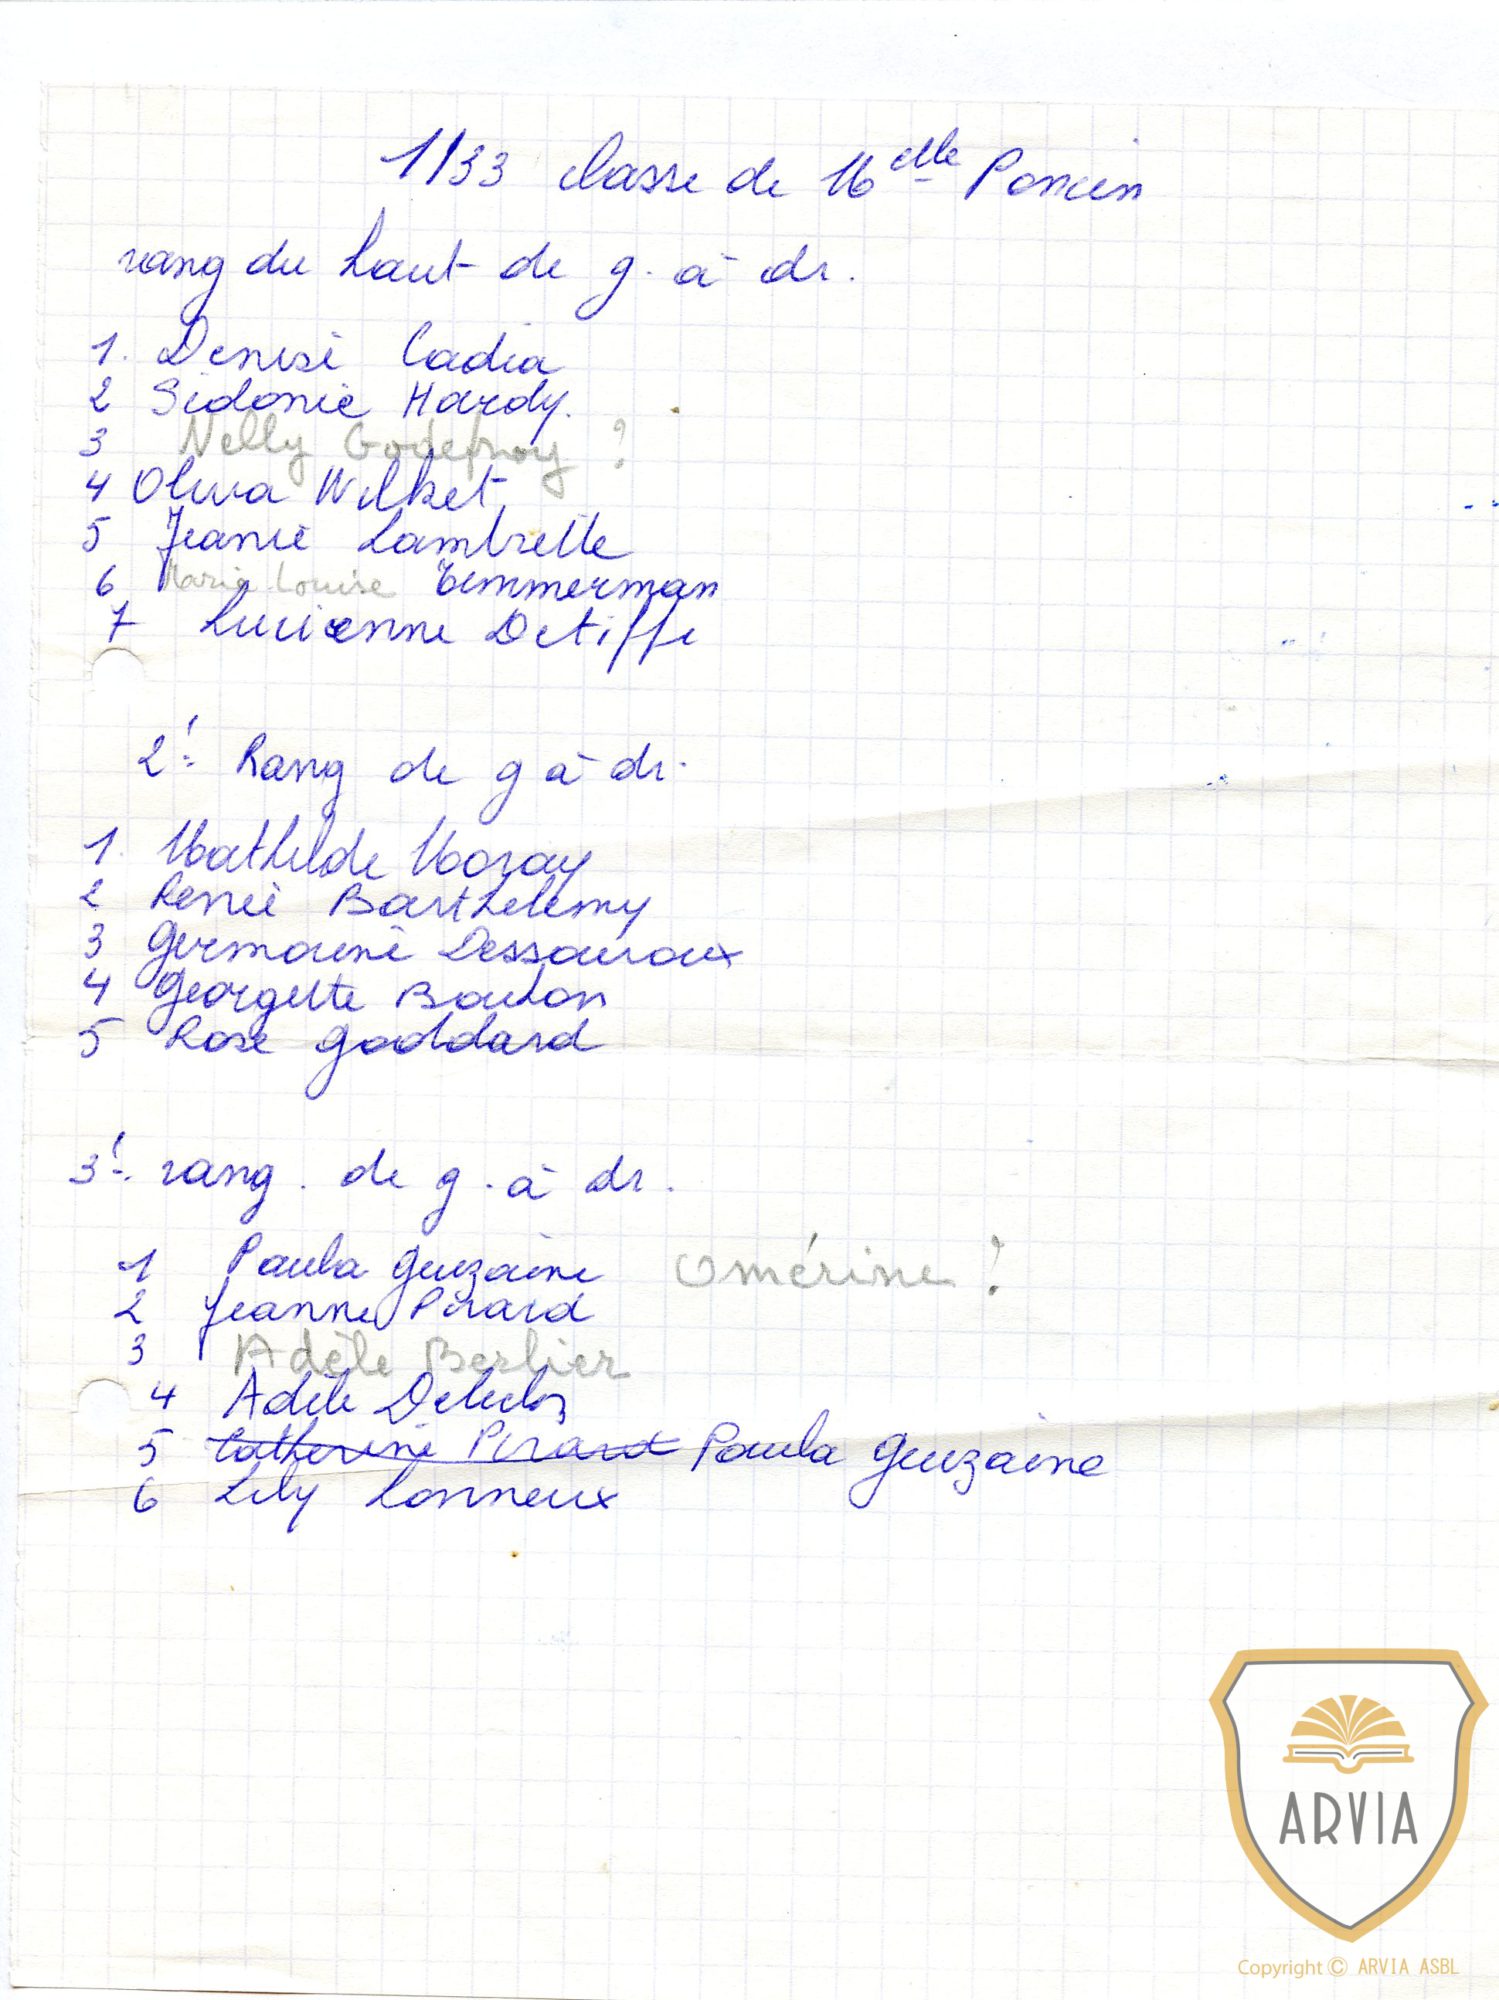 1/33 classe de Melle Poncin
rang du haut de g. à dr.
1. Denise Cadia
2 Sidonie Hardy.
3 Nelly Godefroy ?
4 Oliva Wilket
5 Jeanne Lambrette
6 Marie Louise Timmerman
7 Lucienne Detiffe
2e Rang de g à dr.
1. Mathilde Moray
2 Renée Barthelemy
3 Germaine Dessouroux
4 Georgette Boulon
5 Rose Goddard
3e rang. de g. à dr.
1 Paula Guizaine Omérine ?
2 Jeanne Pirard
3 Adèle Berlier
4 Adèle
5 Catherine Pirard Paula Guizaine
6 Lily Lonneux
ARVIA
Copyright © ARVIA ASBL